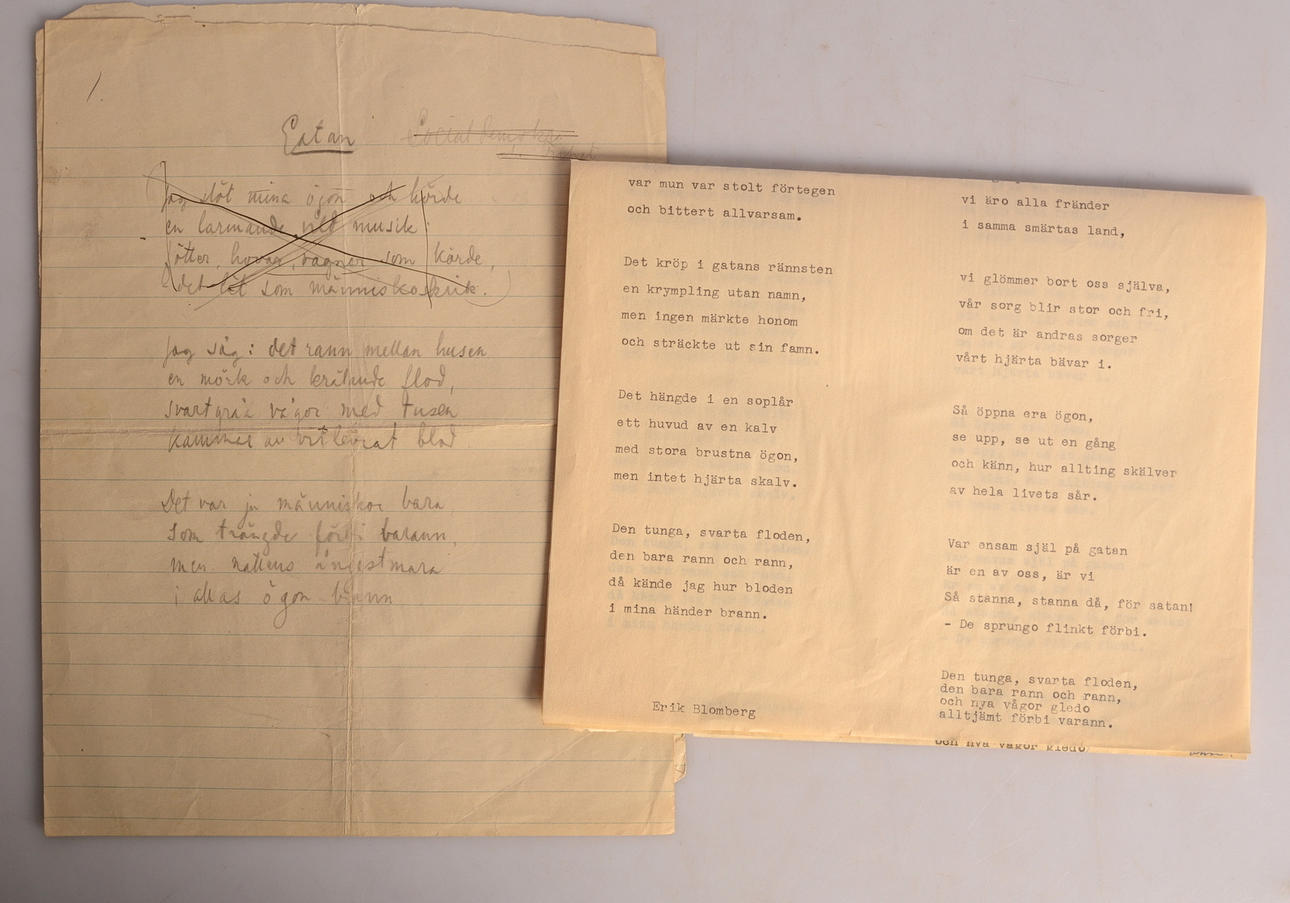 Gatan
Jag slöt mina ögon och hörde
en larmande, vild musik:
fötter, hovar, vagner som körde,
det lät som människoskrik.
Jag såg: det rann mellan husen
en mörk och krälande flod,
svartgråa vågor med tusen
kammar av vitlevrat blod
Det var ju människor bara
som trängde förbi varann,
men nattens ångestmara
i allas ögon brann
var mun var stolt förtegen
och bittert allvarsam.
Det kröp i gatans rännsten
en krympling utan namn,
men ingen märkte honom
och sträckte ut sin famn.
Det hängde i en soplår
ett huvud av en kalv
med stora brustna ögon,
men intet hjärta skalv.
Den tunga, svarta floden,
den bara rann och rann,
då kände jag hur bloden
i mina händer brann.
Erik Blomberg
vi äro alla fränder
i samma smärtas land,
vi glömmer bort oss själva,
vår sorg blir stor och fri,
om det är andras sorger
vårt hjärta bävar i.
Så öppna era ögon,
se upp, se ut en gång
och känn, hur allting skälver
av hela livets sår.
Var ensam själ på gatan
är en av oss, är vi
Så stanna, stanna då, för satan!
- De sprungo flinkt förbi.
Den tunga, svarta floden,
den bara rann och rann,
och nya vågor gledo
alltjämt förbi varann.
och nya vågor gledo